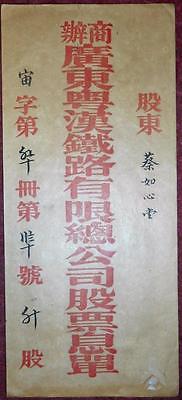 股東 蔡如心堂
商辦廣東粵漢鐵路有限總公司股票息單
宙字第 冊第 號 股